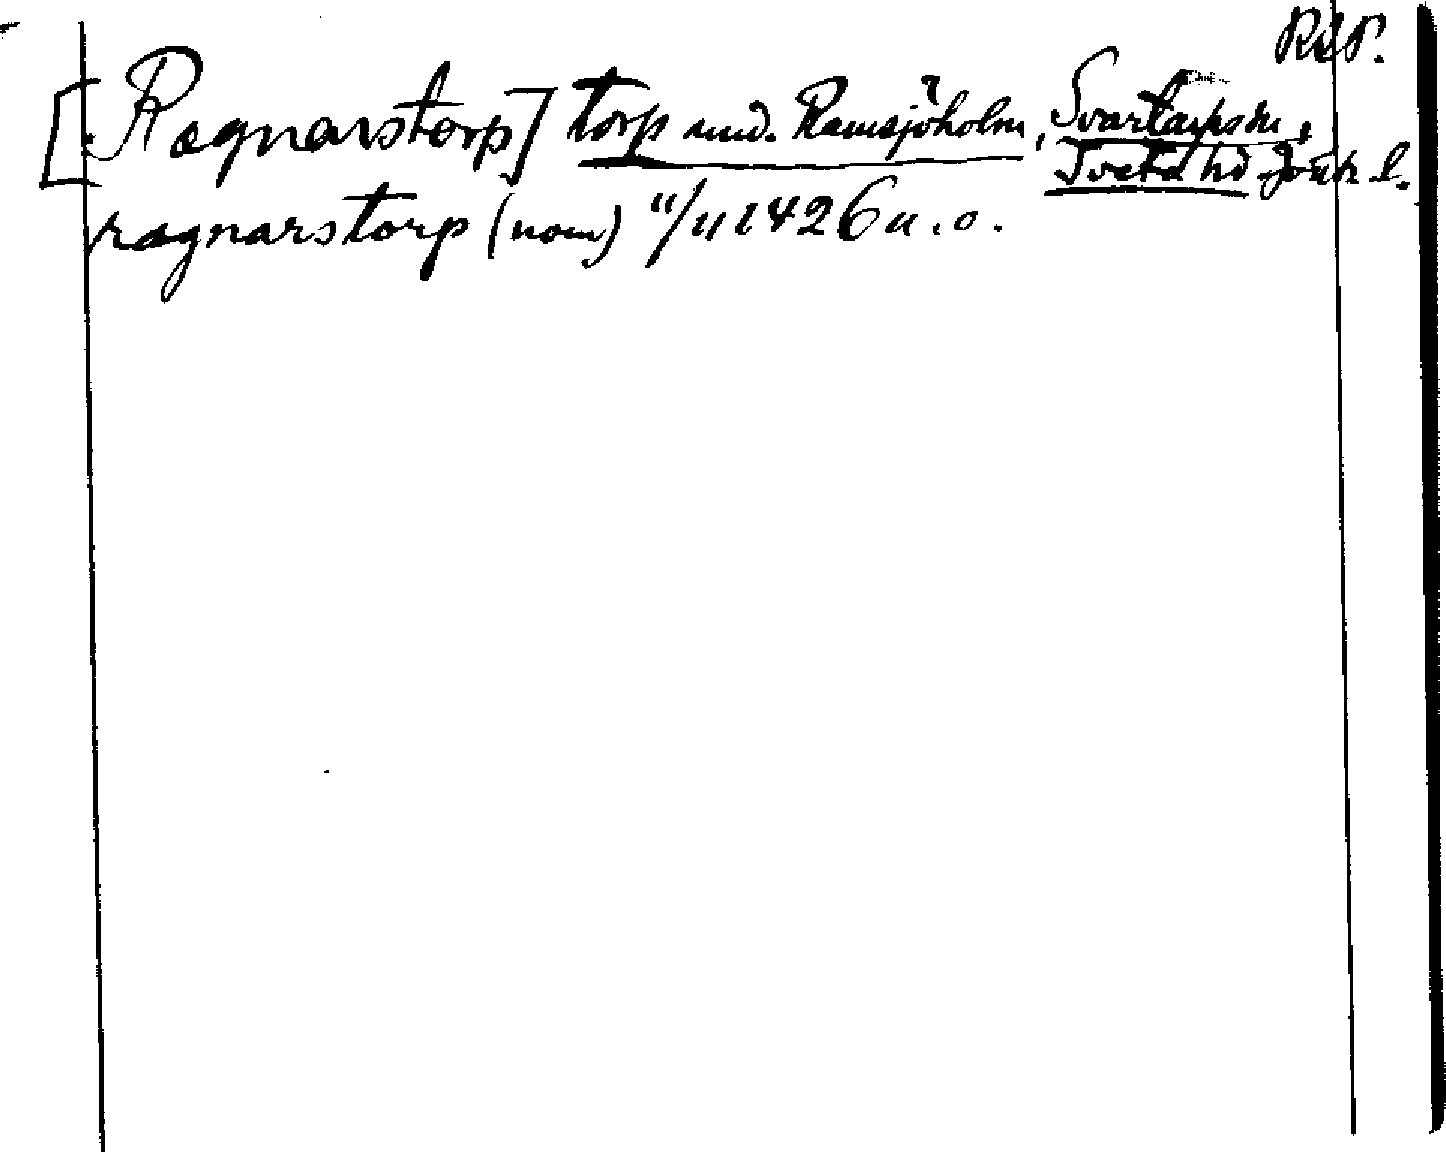 RSP.
[Ragnarstorp] torp und. Ramsjöholm, Svartarps sn,
Tveta hd Jönk. l.
ragnarstorp (nom) 11/11 1426 u. o.